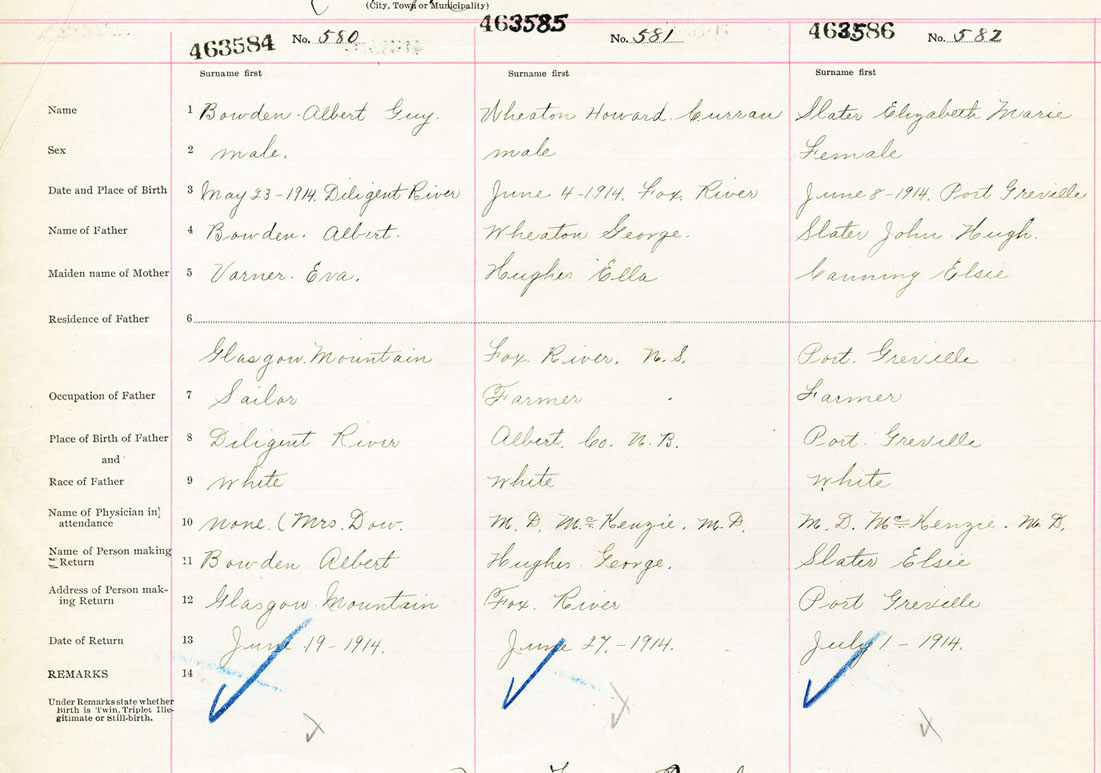 (City, Town or Municipality)
463584 No. 580 463585 No. 581 463586 No. 582
Surname first Surname first Surname first
Name 1 Bowden. Albert Guy. Wheaton Howard. Curran Slater Elizabeth Marie
Sex 2 male. male Female
Date and Place of Birth 3 May 23-1914. Diligent River June 4-1914. Fox. River June 8-1914. Port Greville
Name of Father 4 Bowden. Albert. Wheaton George. Slater John Hugh.
Maiden name of Mother 5 Varner. Eva. Hughes Ella Canning Elsie
Residence of Father 6
Glasgow. Mountain Fox. River. N.S. Port. Greville
Occupation of Father 7 Sailor Farmer Farmer
Place of Birth of Father 8 Diligent River Albert. Co. N.B. Port. Greville
and
Race of Father 9 White White White
Name of Physician in} attendance 10 none. (Mrs. Dow. M. D. McKenzie. M.D. M. D. McKenzie. M.D.
Name of Person making Return 11 Bowden Albert Hughes. George. Slater Elsie
Address of Person making Return 12 Glasgow Mountain Fox. River Port Greville
Date of Return 13 June 19-1914. June 27.-1914. July 1-1914.
REMARKS 14
Under Remarks state whether
Birth is Twin, Triplet Ille-
gitimate or Still-birth.